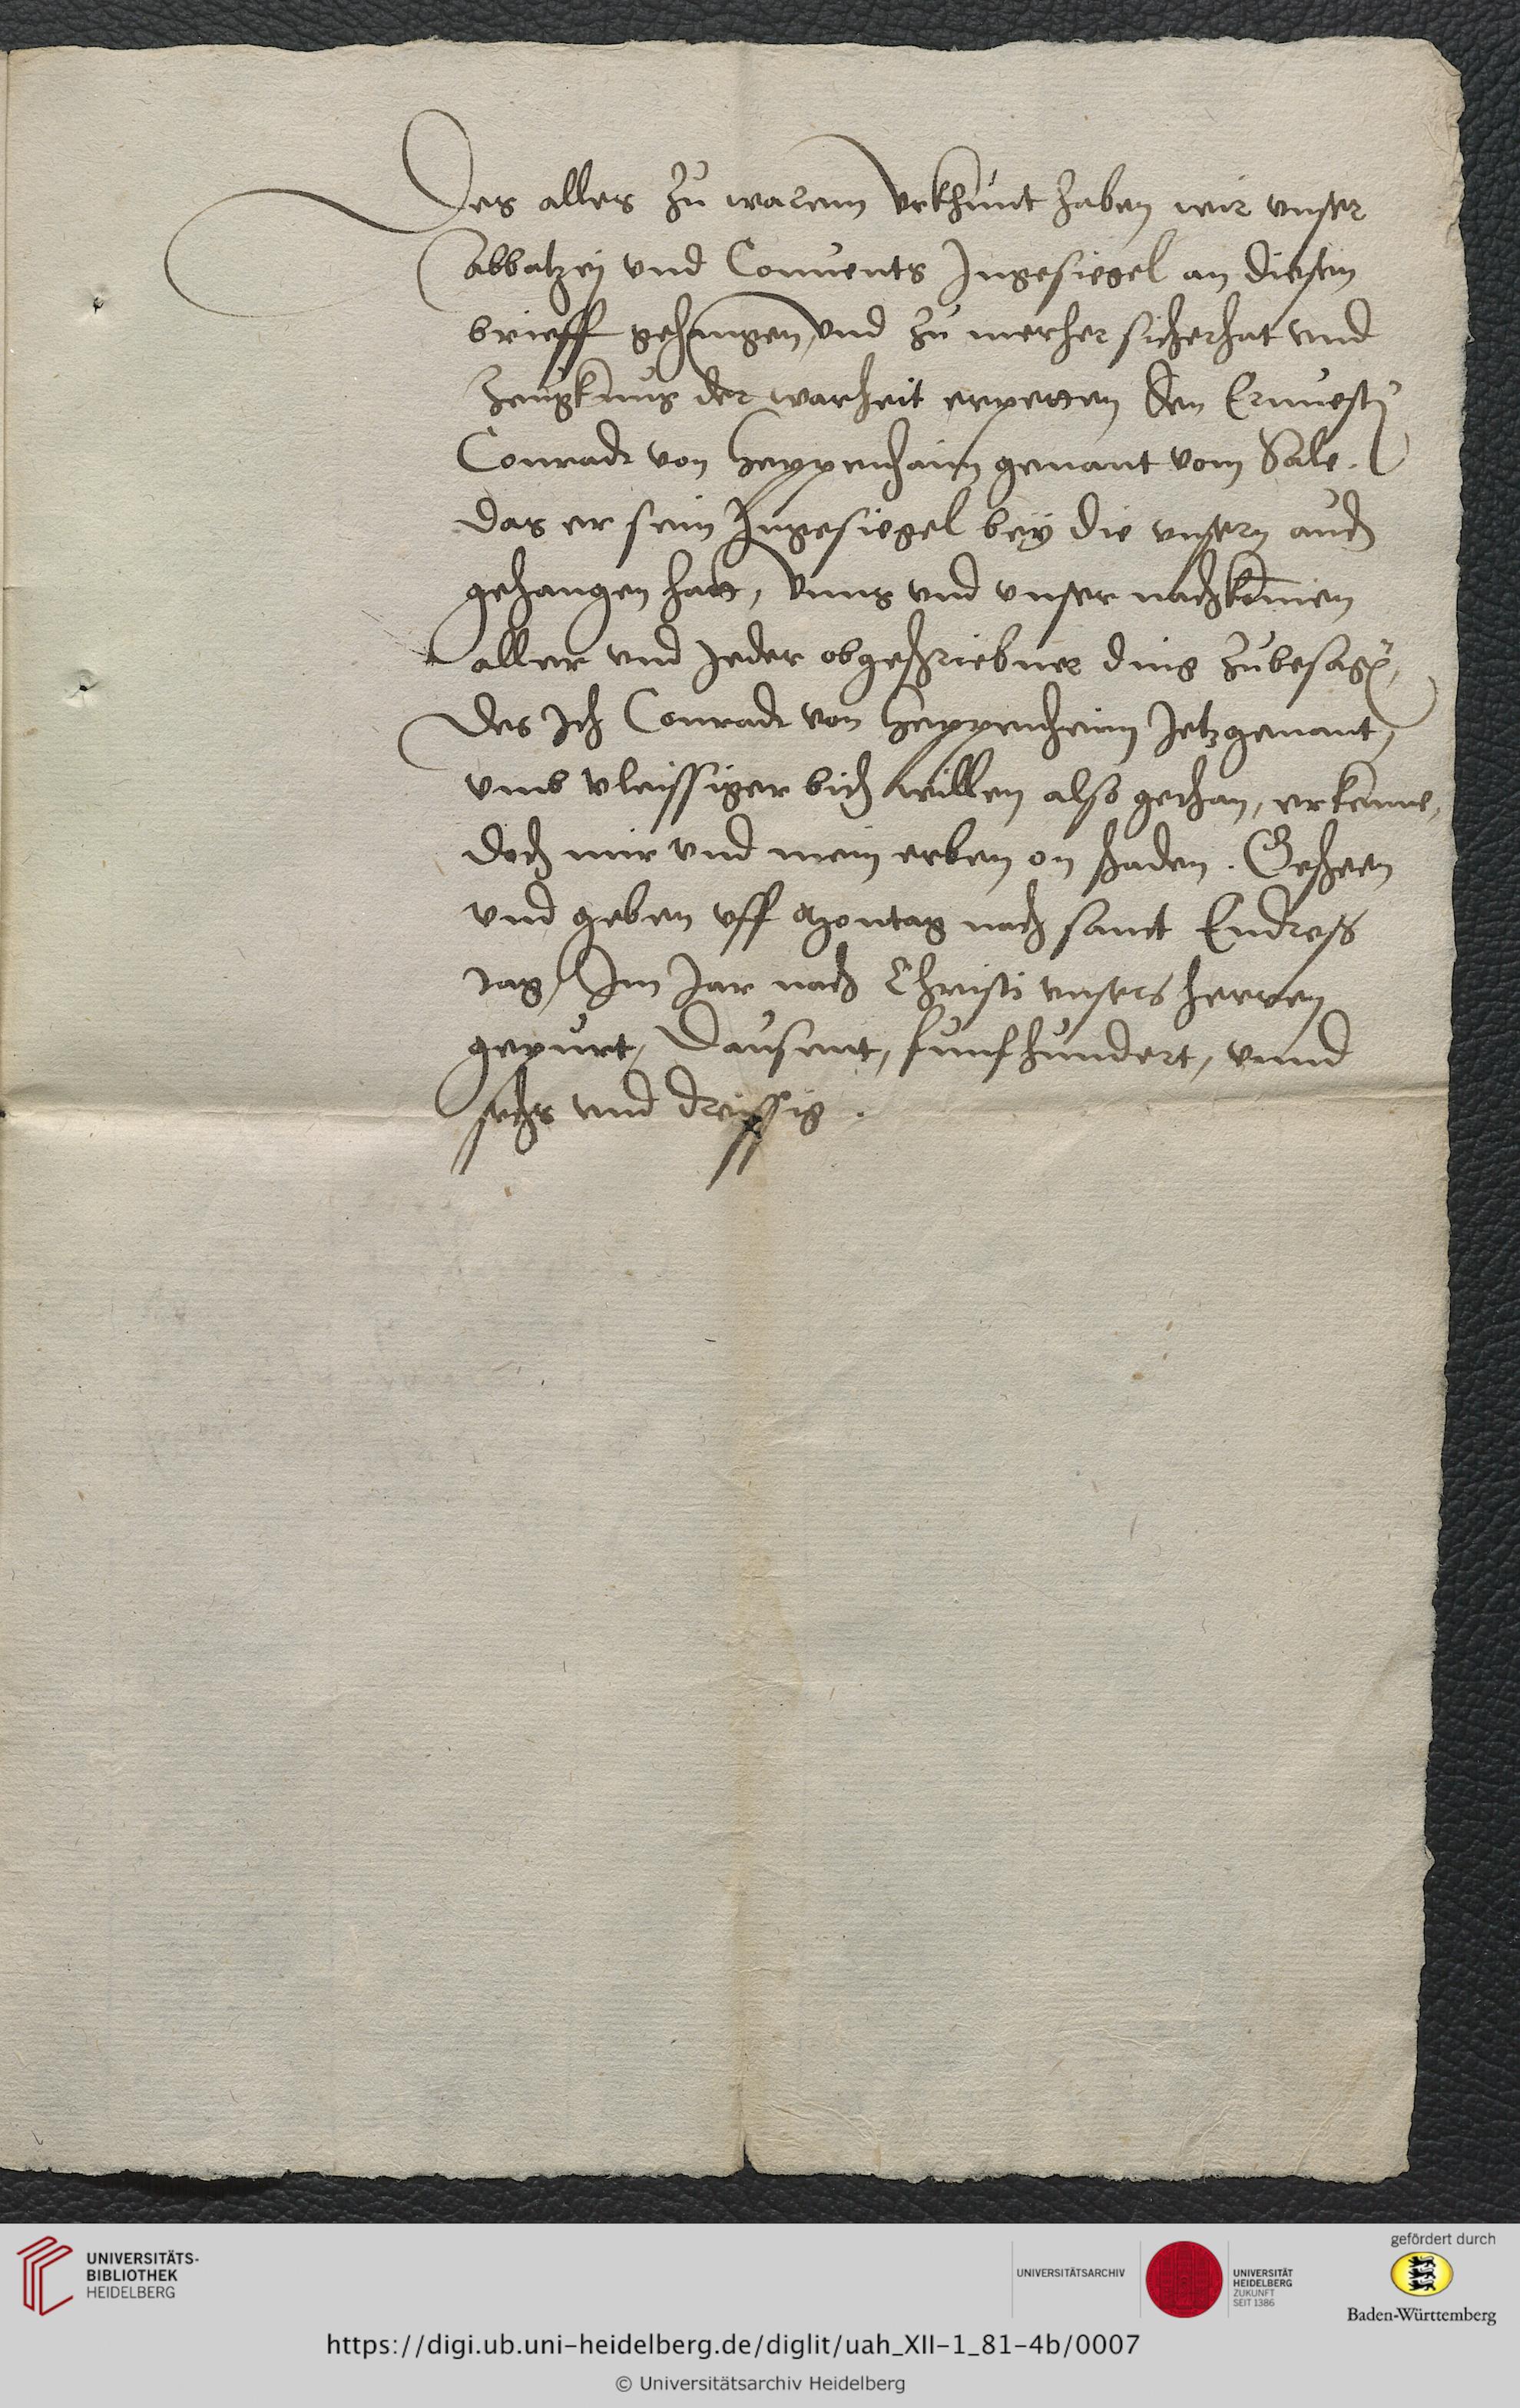 Des alles zu warem urkhunt haben wir unser
abbatzej und Convents Ingesiegel an diesen
brieff gehangen, und zu merher sicherhat und
zeugknus der warheit erpetten den Ernvesten
Conradt von Heppenhaim genant vom Sale.
das er sein Ingesiegel bey die unsern auch
gehangen hatt, unns und unser nachkomen
aller und jeder obgeschriebner ding zubesagen,
des Ich Conradt von Heppenheim Jetzgenant,
umb vleissiger bith willen also gethan, erkenne,
doch mir und mein erben on schaden. Gescheen
und geben uff Montag nach sanct Endress
tag, Im Jar nach Christi unsers herren
gepurt, Dausent, funfhundert, unnd
sechs und dreissig.
UNIVERSITÄTS-
BIBLIOTHEK
HEIDELBERG
UNIVERSITÄTSARCHIV
UNIVERSITÄT
HEIDELBERG
ZUKUNFT
SEIT 1386
gefördert durch
Baden-Württemberg
https://digi.ub.uni-heidelberg.de/diglit/uah_XII-1_81-4b/0007
© Universitätsarchiv Heidelberg